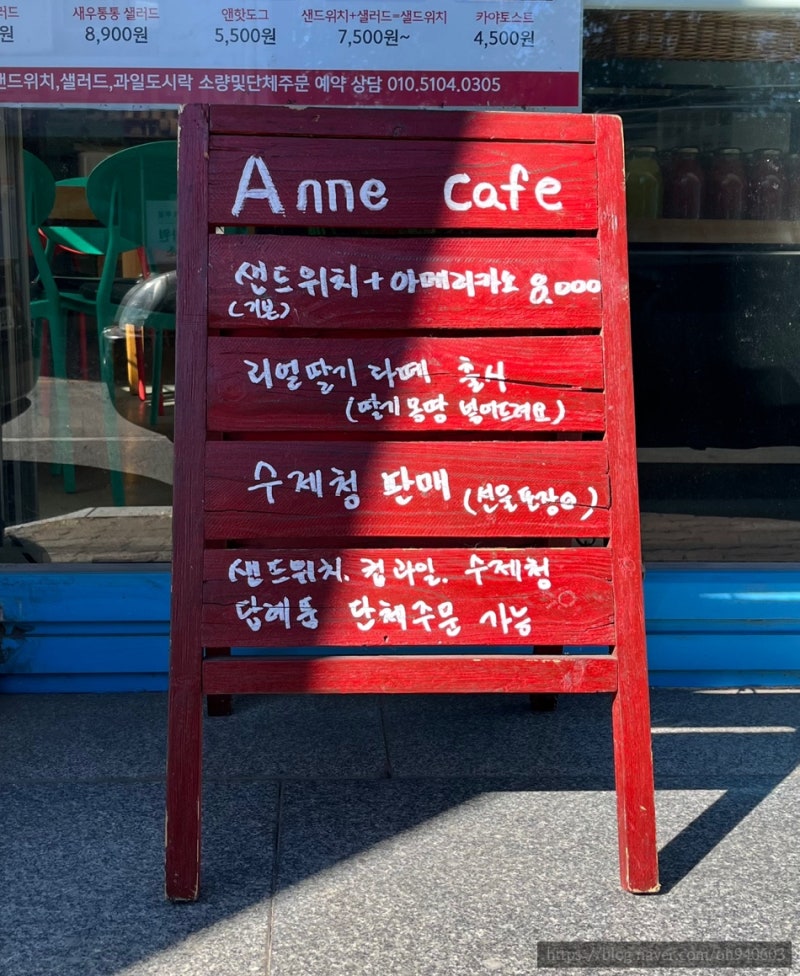 러드 새우통통 샐러드 앤핫도그 샌드위치+샐러드=샐드위치 카야토스트
원 8,900원 5,500원 7,500원~ 4,500원
샌드위치,샐러드,과일도시락 소량및단체주문 예약 상담 010.5104.0305
Anne cafe
샌드위치+아메리카노 8,000
(기본)
리얼딸기 라떼 출시
(딸기 몽땅 넣어드려요)
수제청 판매 (선물포장)
샌드위치. 컵과일. 수제청
답례품 단체주문 가능
https://blog.naver.com/oh940603